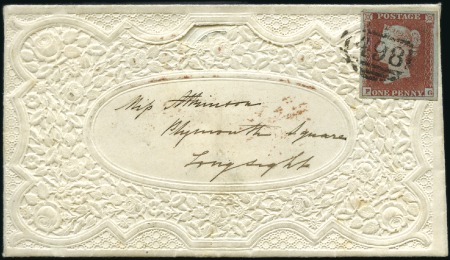 POSTAGE
498
ONE PENNY
Miss Atkinson
Plymouth Square
Longsight